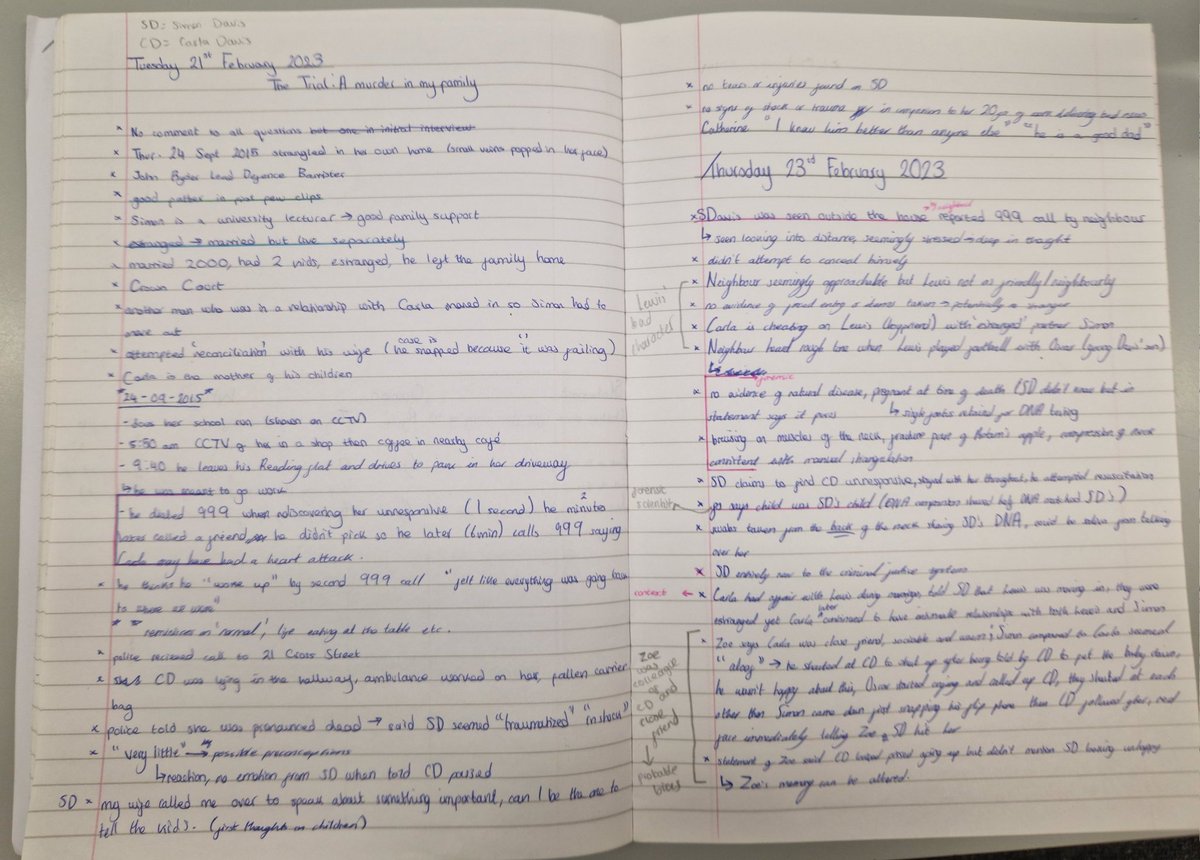 SD = Simon Davis
CD = Carla Davis
Tuesday 21st February 2023
The Trial: A murder in my family
* No comment to all questions but one in initial interview
* Thur. 24 Sept 2015 strangled in her own home (small veins popped in her face)
* John Ryder Lead Defence Barrister
* good father in past few clips
* Simon is a university lecturer → good family support
* estranged → married but live separately
* married 2000, had 2 kids, estranged, he left the family home
* Crown Court
* another man who was in a relationship with Carla moved in so Simon had to
move out
* attempted 'reconciliation' with his wife (case is he snapped because 'it' was failing)
* Carla is the mother of his children
*24-09-2015*
- does her school run (shown on CCTV)
- 5:50 am CCTV of her in a shop then coffee in nearby café
- 9:40 he leaves his Reading flat and drives to park in her driveway
↳ he was meant to go work
- he dialled 999 when rediscovering her unresponsive (1 second) he 2 minutes
later called a friend, he didn't pick so he later (6 min) calls 999 saying
Carla may have had a heart attack.
* he thinks he "woke up" by second 999 call "felt like everything was going back
to where we were"
* * reminisces on 'normal', life eating at the table etc.
* police recieved call to 21 Cross Street
* CD was lying in the hallway, ambulance worked on her, fallen carrier
bag
* police told she was pronounced dead → said SD seemed "traumatized" "in shock"
* "very little" → possible preconceptions
↳ reaction, no emotion from SD when told CD passed
SD * my wife called me over to speak about something important, can I be the one to
tell the kids. (first thoughts on children)
* no bruises or injuries found on SD
* no signs of shock or trauma in comparison to her 20yrs of delivering bad news
Catherine "I knew him better than anyone else" "he is a good dad"
Thursday 23rd February 2023
* SDavis was seen outside the house → reported 999 call by neighbour
↳ seen looking into distance, seemingly stressed → deep in thought
* didn't attempt to conceal himself
Lewis' bad character
* Neighbour seemingly approachable but Lewis not as friendly/neighbourly
* no evidence of forced entry or items taken → potentially
* Carla is cheating on Lewis (boyfriend) with 'estranged' partner Simon
* Neighbour heard rough tone when Lewis played football with Oscar (young Davis' son)
→ forensic
* no evidence of natural disease, pregnant at time of death (SD didn't know but in
statement says it proves ↳ single foetus retained for DNA testing
* bruising on muscles of the neck, fracture part of Adam's apple, compression of neck
consistent with manual strangulation
* SD claims to find CD unresponsive, stayed with her throughout, he attempted resuscitation
forensic scientist
* fs says child was SD's child (DNA comparison showed half DNA matched SD's)
* swabs taken from the back of the neck showing SD's DNA, could be saliva from talking
over her
* SD entirely new to the criminal justice systems
context ←
* Carla had affair with Lewis during marriage, told SD that Lewis was moving in, they were
estranged yet Carla later continued to have intimate relationships with both Lewis and Simon
Zoe was colleague of CD and close friend ↓ probable bias
* Zoe says Carla was close friend, sociable and warm; Simon compared to Carla seemed
"aloof" → he shouted at CD to shut up after being told by CD to put the baby down,
he wasn't happy about this, Oscar started crying and called up CD, they shouted at each
other then Simon came down first snapping his flip phone then CD followed after, red
face immediately telling Zoe SD hit her
* statement of Zoe said CD looked pissed going up but didn't mention SD looking unhappy
↳ Zoe's memory can be altered.